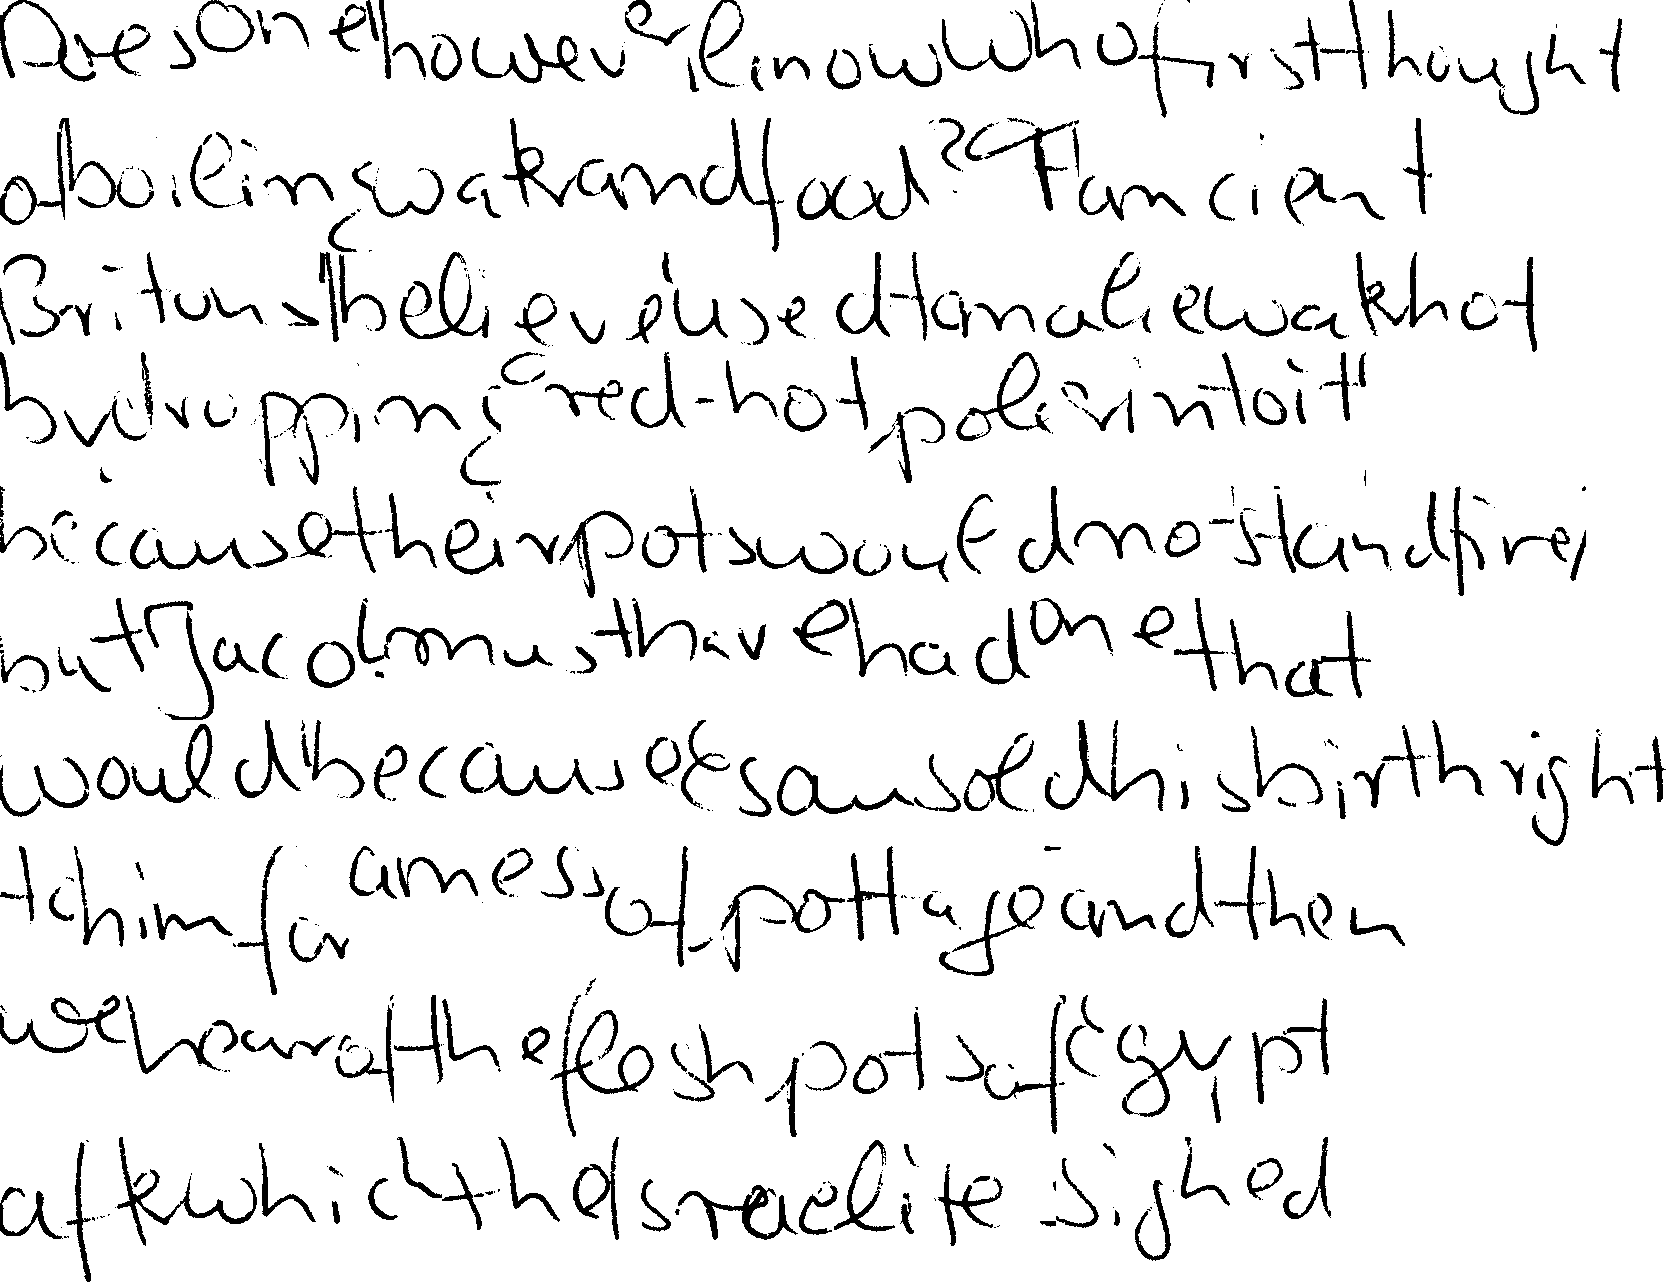 Does one however know who first thought
of boiling water and food? The ancient
Britons I believe used to make water hot
by dropping red-hot pokers into it
because their pots would not stand fire,
but Jacob must have had one that
would because Esau sold his birthright
to him for a mess of pottage and then
we hear of the flesh pots of Egypt
after which the Israelite sighed